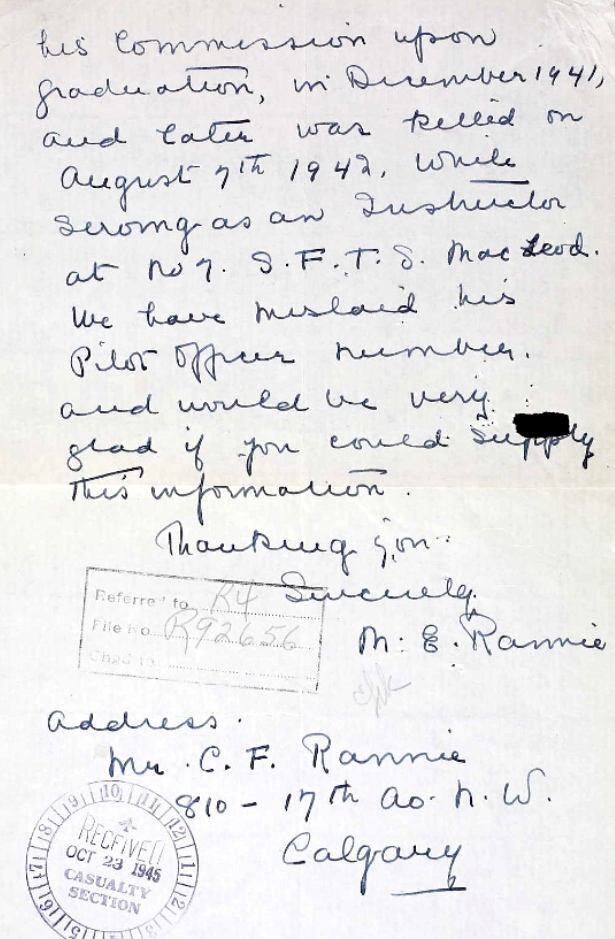 his Commission upon
graduation, in December 1941,
and later was killed on
August 7th 1942. while
serving as an Instructor
at No 7. S.F.T.S. MacLeod.
We have mislaid his
Pilot Officer number.
and would be very
glad if you could supply
this information.
Thanking you.
Sincerely
M. E. Rannie
Referred to R4
File No. R92656
Chgd to
Address.
Mr. C. F. Rannie
810 - 17th Av. N.W.
Calgary
RECEIVED
OCT 23 1945
CASUALTY
SECTION